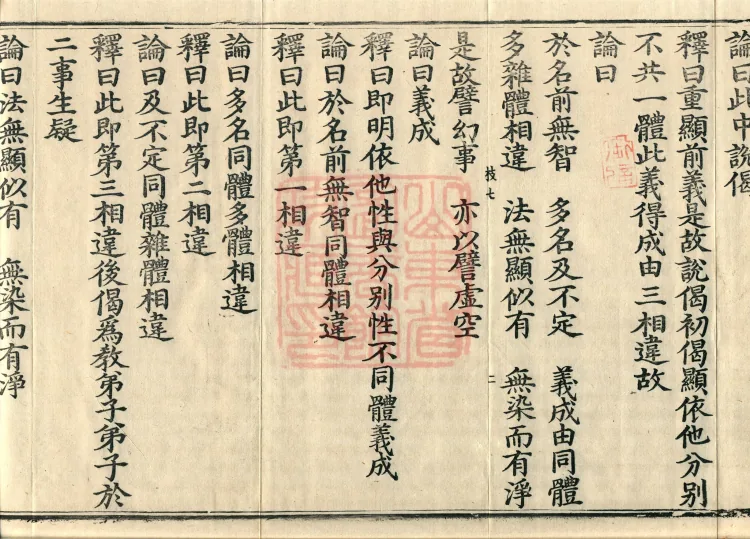 論曰此中說偈
釋曰重顯前義是故說偈初偈顯依他分別
不共一體此義得成由三相違故
論曰
於名前無智　多名及不定　義成由同體
多雜體相違　法無顯似有　無染而有淨
枝七　二
是故譬幻事　亦以譬虛空
論曰義成
釋曰即明依他性與分別性不同體義成
論曰於名前無智同體相違
釋曰此即第一相違
論曰多名同體多體相違
釋曰此即第二相違
論曰及不定同體雜體相違
釋曰此即第三相違後偈為教弟子弟子於
二事生疑
論曰法無顯似有　無染而有淨